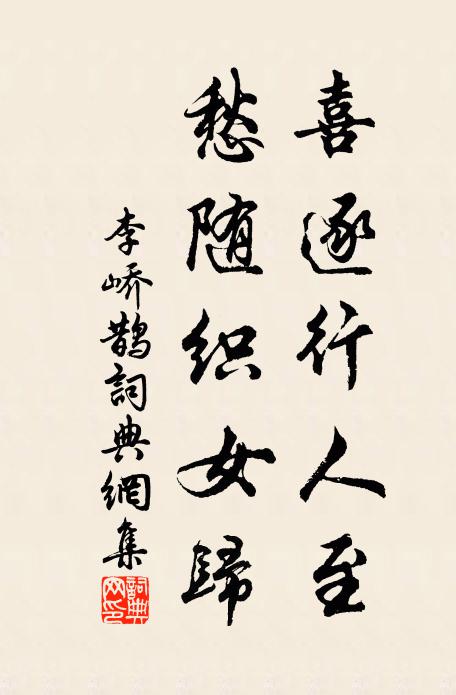 喜逐行人至
愁随织女歸
李峤鹊詞典網集
詞典网印